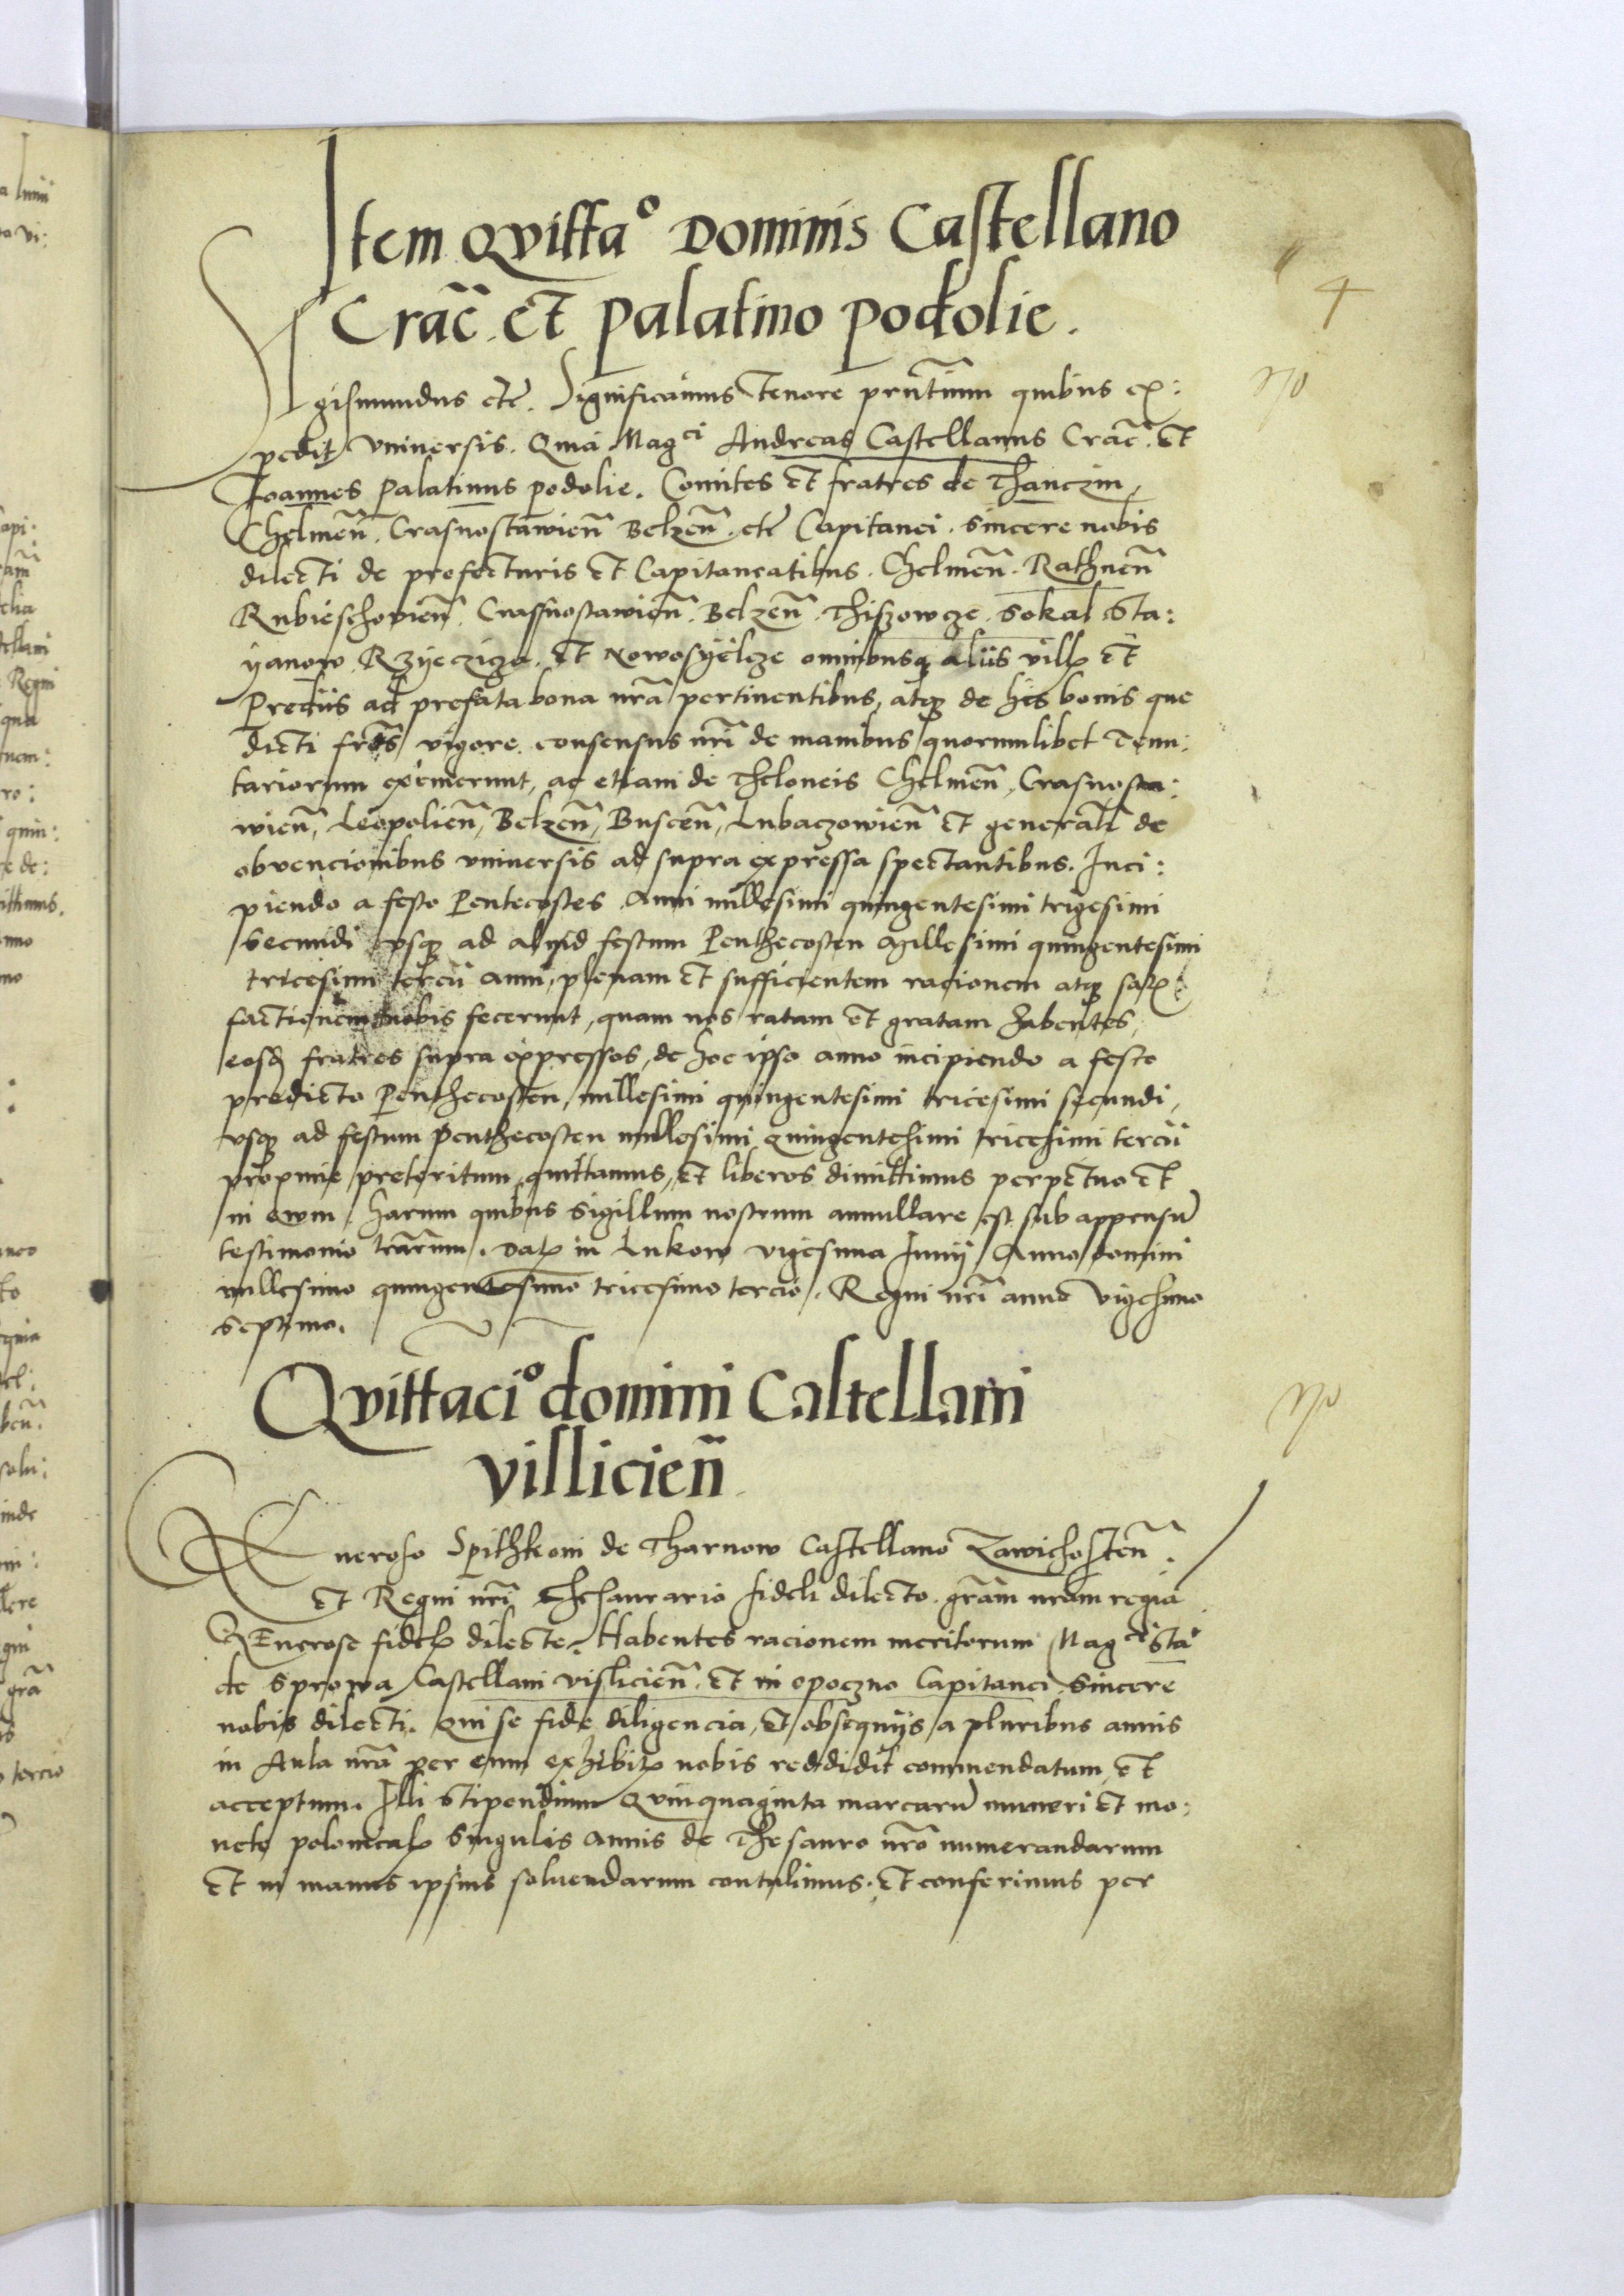 Item Qvitta° Dominis Castellano
Crac̄. et palatino podolie.
4
Sigismundus etc̄. Significamus tenore prn̄tium quibus ex:
pedit vniuersis. Quia Magci Andreas Castellanus Crac̄. et
Joannes palatinus podolie. Comites et fratres de Thanczin,
Chelmen̄. Crasnostawien̄ Belzen̄. etc̄ Capitanei. sincere nobis
dilecti de prefecturis et Capitaneatibus. Chelmen̄. Rathnen̄
Rubieschovien̄. Crassnostawien̄. Belzen̄. Thiszowcze. Sokal. Sta:
yanow. Rzyeczicza. et Nowosyelcze omnibusq₃ aliis villꝭ et
Prediis ad prefata bona nr̄a pertinentibus, atq₃ de his bonis que
dicti fr̄es vigore consensus nr̄i de manibus quorumlibet Tenu:
tariorum exemerunt, ac etiam de Theloneis Chelmen̄, Crasnosta:
wien̄, Leopolien̄, Belzen̄, Buscen̄, Lubaczowien̄ et generalr̄ de
obvencionibus vniuersis ad supra expressa spectantibus. Inci:
piendo a festo Pentecostes Anni millesimi quingentesimi trigesimi
secundi vsq₃ ad aliud festum Penthecosten Millesimi quingentesimi
tricesimi tercii anni, plenam et sufficientem racionem atq₃ satꝭ
factionem nobis fecerunt, quam nos ratam et gratam habentes,
eosd̄ fratres supra expressos, de hoc ipso anno incipiendo a festo
predicto Penthecosten, millesimi quingentesimi tricesimi secundi,
vsq₃ ad festum penthecosten millesimi quingentesimi tricesimi tercii
proxime preteritum, quittamus, et liberos dimittimus perpetuo et
in ewm. harum quibus sigillum nostrum annullare est sub appensum̄
testimonio lr̄arum. Datꝭ in Lukow vigesima Junij Anno domini
millesimo quingentesimo tricesimo tercio. Regni nr̄i anno vigesimo
septimo.
Qvittaci° domini Castellani
vislicien̄
Generoso Spithkoni de Tharnow Castellano Zawichosten̄.
et Regni nr̄i Thesaurario fideli dilecto. gr̄am nr̄am regiā
GEnerose fidelꝭ dilecte. Habentes racionem meritorum Magci Sta'
de Sprowa Castellani vislicien̄. et in opoczno Capitanei sincere
nobis dilecti. qui se fide diligencia, et obsequijs a pluribus annis
in Aula nr̄a per eum exhibitꝭ nobis reddidit commendatum et
acceptum. Illi stipendium quinquaginta marcarū numeri et mo:
nete polonicalꝭ singulis annis de Thesauro nr̄o numerandarum
et in manus ipsius soluendarum contulimus. et conferimus per